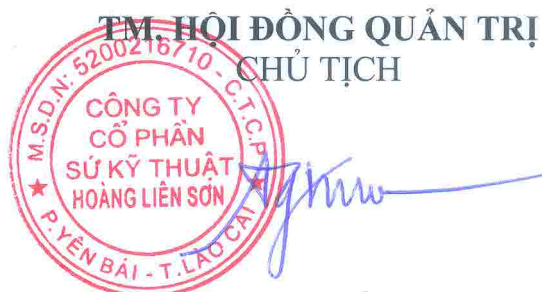 TM. HỘI ĐỒNG QUẢN TRỊ
CHỦ TỊCH
M.S.D.N: 5200216710 - C.T.C.P
CÔNG TY
CỔ PHẦN
SỨ KỸ THUẬT
HOÀNG LIÊN SƠN
P. YÊN BÁI - T. LÀO CAI